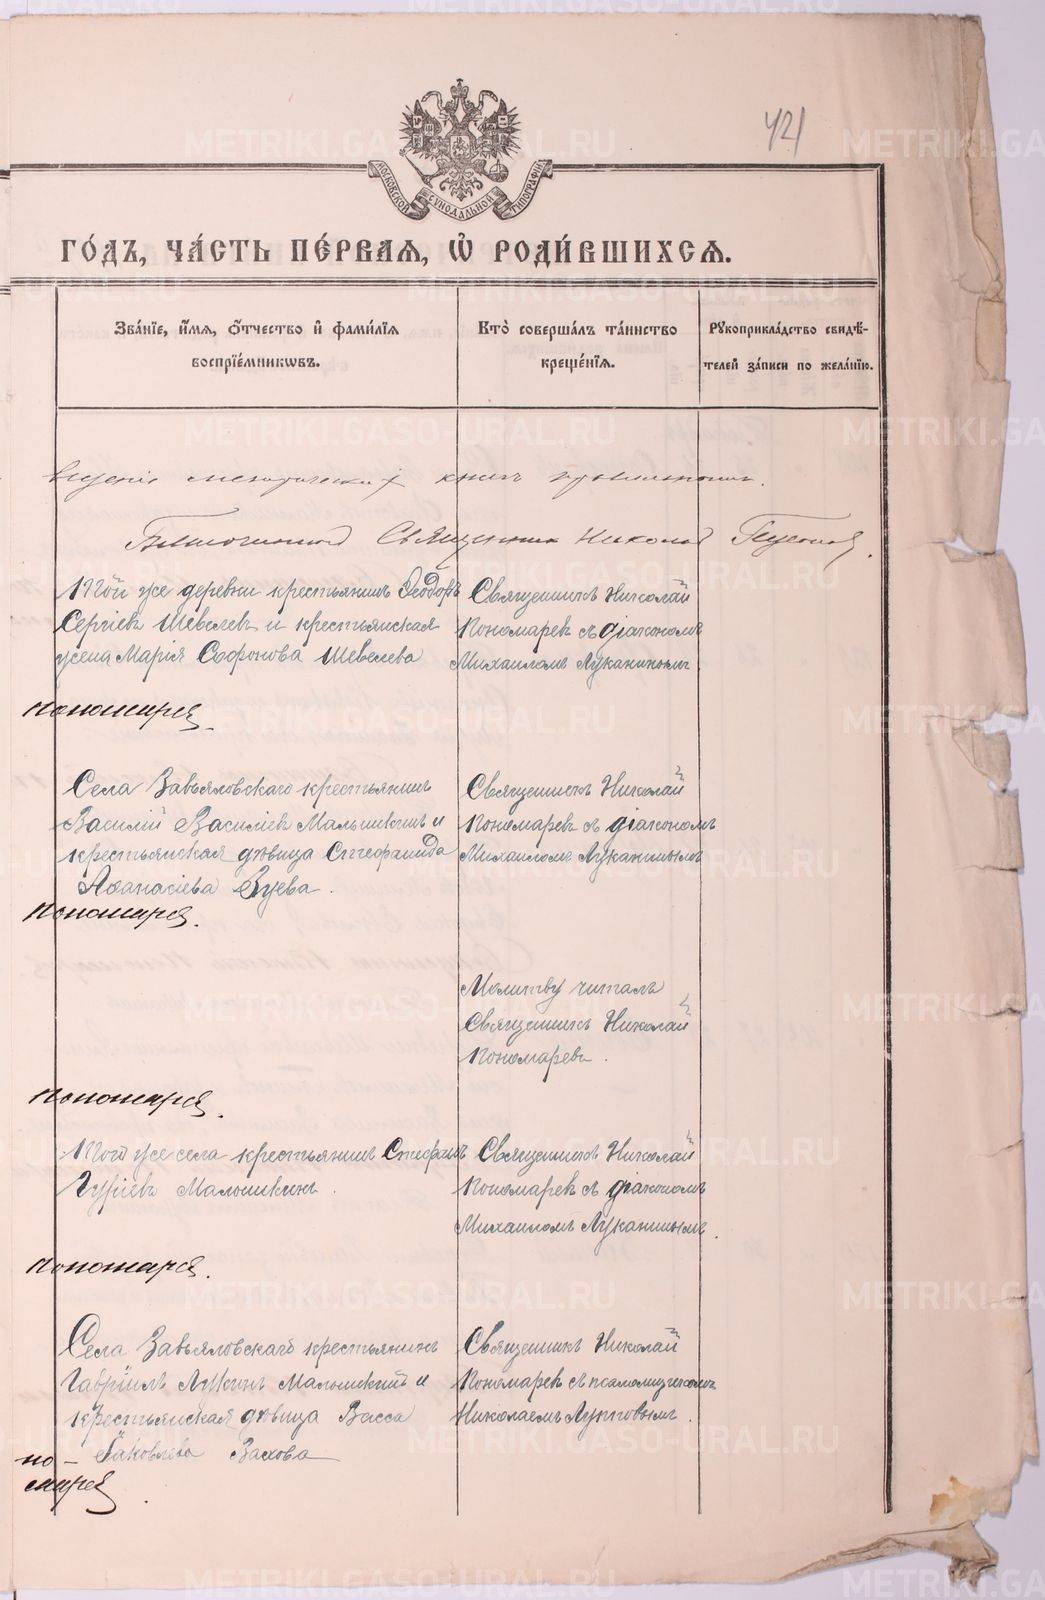 421
МОСКОВСКОЙ СѴНОДАЛЬНОЙ ТИПОГРАФІИ
ГО́ДЪ, ЧА́СТЬ ПЕ́РВАѦ, Ѡ҆ РОДИ́ВШИХСѦ.
Зва́нїе, и҆́мѧ, ѻ҆́тчество и҆ фами́лїѧ
воспрїе́мникѡвъ.
Кто̀ соверша́лъ та́инство
креще́нїѧ.
Рꙋкоприкла́дство свидѣ́-
телей за́писи по жела́нїю.
веденіе метрическихъ книгъ
Благочинный Священникъ Николай
Той же деревни крестьянинъ Ѳеодоръ
Сергіевъ Шевелевъ и крестьянская
жена Марія Софонова Шевелева
Священникъ Николай
Пономаревъ съ діакономъ
Михаиломъ Луканинымъ.
Пономарев.
Села Завьяловскаго крестьянинъ
Василій Василіевъ Малышкинъ и
крестьянская дѣвица Стефанида
Аѳанасіева Зуева.
Священникъ Николай
Пономаревъ съ діакономъ
Михаиломъ Луканинымъ
Пономарев.
Молитву читалъ
Священникъ Николай
Пономаревъ.
Пономарев.
Того же села крестьянинъ Стефанъ
Гуріевъ Малышкин.
Священникъ Николай
Пономаревъ съ діакономъ
Михаиломъ Луканинымъ.
Пономарев.
Села Завьяловскаго крестьянинъ
Гавріилъ Лукинъ и
крестьянская дѣвица Васса
Іаковлева Вахова
Священникъ Николай
Пономаревъ съ псаломщикомъ
Николаемъ Лупповымъ.
по-
марев.
METRIKI.GASO-URAL.RU